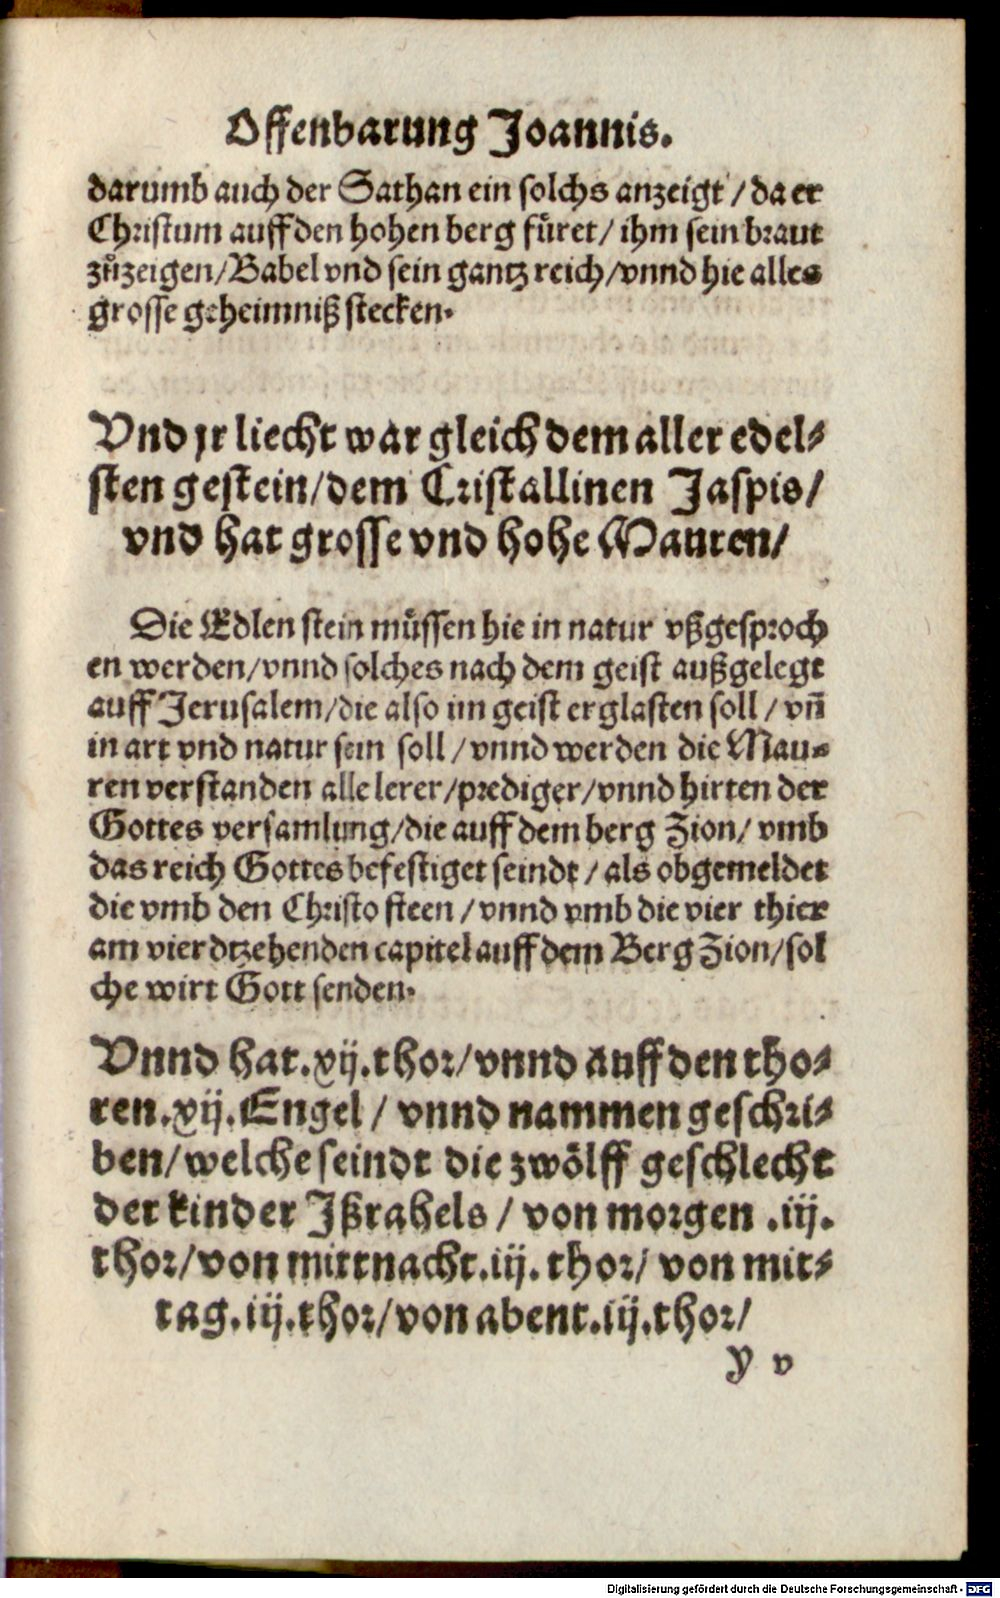 Offenbarung Joannis.
darumb auch der Sathan ein solchs anzeigt / da er
Christum auff den hohen berg füret / ihm sein braut
zůzeigen / Babel vnd sein gantz reich / vnnd hie alles
grosse geheimniß stecken.
Vnd jr liecht war gleich dem aller edel⸗
sten gestein / dem Cristallinen Jaspis /
vnd hat grosse vnd hohe Mauren /
Die Edlen stein müssen hie in natur vßgesproch
en werden / vnnd solches nach dem geist außgelegt
auff Jerusalem / die also im geist erglasten soll / vñ
in art vnd natur sein soll / vnnd werden die Mau⸗
ren verstanden alle lerer / prediger / vnnd hirten der
Gottes versamlung / die auff dem berg Zion / vmb
das reich Gottes befestiget seindt / als obgemeldet
die vmb den Christo steen / vnnd vmb die vier thier
am vierdtzehenden capitel auff dem Berg Zion / sol
che wirt Gott senden.
Vnnd hat .xij. thor / vnnd auff den tho⸗
ren .xij. Engel / vnnd nammen geschri⸗
ben / welche seindt die zwölff geschlecht
der kinder Jßrahels / von morgen .iij.
thor / von mittnacht .iij. thor / von mit⸗
tag .iij. thor / von abent .iij. thor /
Y v
Digitalisierung gefördert durch die Deutsche Forschungsgemeinschaft - DFG